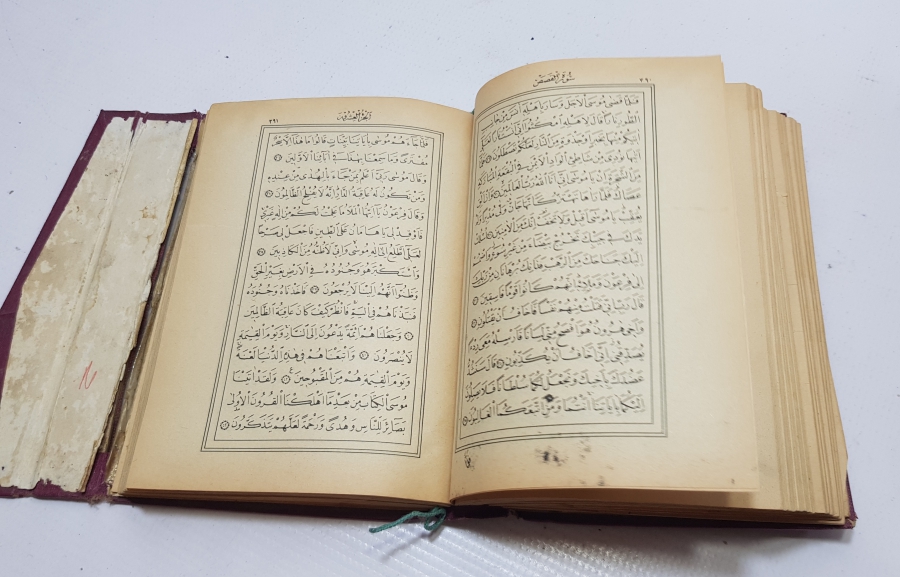 سُورَةُ الْقَصَصِ ٣٩٠
فَلَمَّا قَضٰى مُوسَى الْاَجَلَ وَسَارَ بِاَهْلِهِ اٰنَسَ مِنْ جَانِبِ
الطُّورِ نَارًا قَالَ لِاَهْلِهِ امْكُثُوا اِنِّي اٰنَسْتُ نَارًا لَعَلِّي
اٰتِيكُمْ مِنْهَا بِخَبَرٍ اَوْ جَذْوَةٍ مِنَ النَّارِ لَعَلَّكُمْ تَصْطَلُونَ ﴿٢٩﴾ فَلَمَّا
اَتٰيهَا نُودِيَ مِنْ شَاطِئِ الْوَادِ الْاَيْمَنِ فِي الْبُقْعَةِ الْمُبَارَكَةِ
مِنَ الشَّجَرَةِ اَنْ يَا مُوسٰى اِنِّي اَنَا اللّٰهُ رَبُّ الْعَالَمِينَ ﴿٣٠﴾ وَاَنْ اَلْقِ
عَصَاكَ فَلَمَّا رَاٰهَا تَهْتَزُّ كَاَنَّهَا جَانٌّ وَلّٰى مُدْبِرًا وَلَمْ
يُعَقِّبْ يَا مُوسٰى اَقْبِلْ وَلَا تَخَفْ اِنَّكَ مِنَ الْاٰمِنِينَ ﴿٣١﴾ اُسْلُكْ
يَدَكَ فِي جَيْبِكَ تَخْرُجْ بَيْضَاءَ مِنْ غَيْرِ سُوءٍ وَاضْمُمْ
اِلَيْكَ جَنَاحَكَ مِنَ الرَّهْبِ فَذَانِكَ بُرْهَانَانِ مِنْ رَبِّكَ
اِلٰى فِرْعَوْنَ وَمَلَائِهِ اِنَّهُمْ كَانُوا قَوْمًا فَاسِقِينَ ﴿٣٢﴾
قَالَ رَبِّ اِنِّي قَتَلْتُ مِنْهُمْ نَفْسًا فَاَخَافُ اَنْ يَقْتُلُونِ ﴿٣٣﴾
وَاَخِي هٰرُونُ هُوَ اَفْصَحُ مِنِّي لِسَانًا فَاَرْسِلْهُ مَعِيَ رِدْءًا
يُصَدِّقُنِي اِنِّي اَخَافُ اَنْ يُكَذِّبُونِ ﴿٣٤﴾ قَالَ سَنَشُدُّ
عَضُدَكَ بِاَخِيكَ وَنَجْعَلُ لَكُمَا سُلْطَانًا فَلَا يَصِلُونَ
اِلَيْكُمَا بِاٰيَاتِنَا اَنْتُمَا وَمَنِ اتَّبَعَكُمَا الْغَالِبُونَ ﴿٣٥﴾
اَلْجُزْءُ الْعِشْرُونَ ٣٩١
فَلَمَّا جَاءَهُمْ مُوسٰى بِاٰيَاتِنَا بَيِّنَاتٍ قَالُوا مَا هٰذَا اِلَّا سِحْرٌ
مُفْتَرًى وَمَا سَمِعْنَا بِهٰذَا فِي اٰبَائِنَا الْاَوَّلِينَ ﴿٣٦﴾
وَقَالَ مُوسٰى رَبِّي اَعْلَمُ بِمَنْ جَاءَ بِالْهُدٰى مِنْ عِنْدِهِ
وَمَنْ تَكُونُ لَهُ عَاقِبَةُ الدَّارِ اِنَّهُ لَا يُفْلِحُ الظَّالِمُونَ ﴿٣٧﴾
وَقَالَ فِرْعَوْنُ يَا اَيُّهَا الْمَلَاُ مَا عَلِمْتُ لَكُمْ مِنْ اِلٰهٍ غَيْرِي
فَاَوْقِدْ لِي يَا هَامَانُ عَلَى الطِّينِ فَاجْعَلْ لِي صَرْحًا
لَعَلِّي اَطَّلِعُ اِلٰى اِلٰهِ مُوسٰى وَاِنِّي لَاَظُنُّهُ مِنَ الْكَاذِبِينَ ﴿٣٨﴾
وَاسْتَكْبَرَ هُوَ وَجُنُودُهُ فِي الْاَرْضِ بِغَيْرِ الْحَقِّ
وَظَنُّوا اَنَّهُمْ اِلَيْنَا لَا يُرْجَعُونَ ﴿٣٩﴾ فَاَخَذْنَاهُ وَجُنُودَهُ
فَنَبَذْنَاهُمْ فِي الْيَمِّ فَانْظُرْ كَيْفَ كَانَ عَاقِبَةُ الظَّالِمِينَ
﴿٤٠﴾ وَجَعَلْنَاهُمْ اَئِمَّةً يَدْعُونَ اِلَى النَّارِ وَيَوْمَ الْقِيٰمَةِ
لَا يُنْصَرُونَ ﴿٤١﴾ وَاَتْبَعْنَاهُمْ فِي هٰذِهِ الدُّنْيَا لَعْنَةً
وَيَوْمَ الْقِيٰمَةِ هُمْ مِنَ الْمَقْبُوحِينَ ﴿٤٢﴾ وَلَقَدْ اٰتَيْنَا
مُوسَى الْكِتَابَ مِنْ بَعْدِ مَا اَهْلَكْنَا الْقُرُونَ الْاُولٰى
بَصَائِرَ لِلنَّاسِ وَهُدًى وَرَحْمَةً لَعَلَّهُمْ يَتَذَكَّرُونَ ﴿٤٣﴾